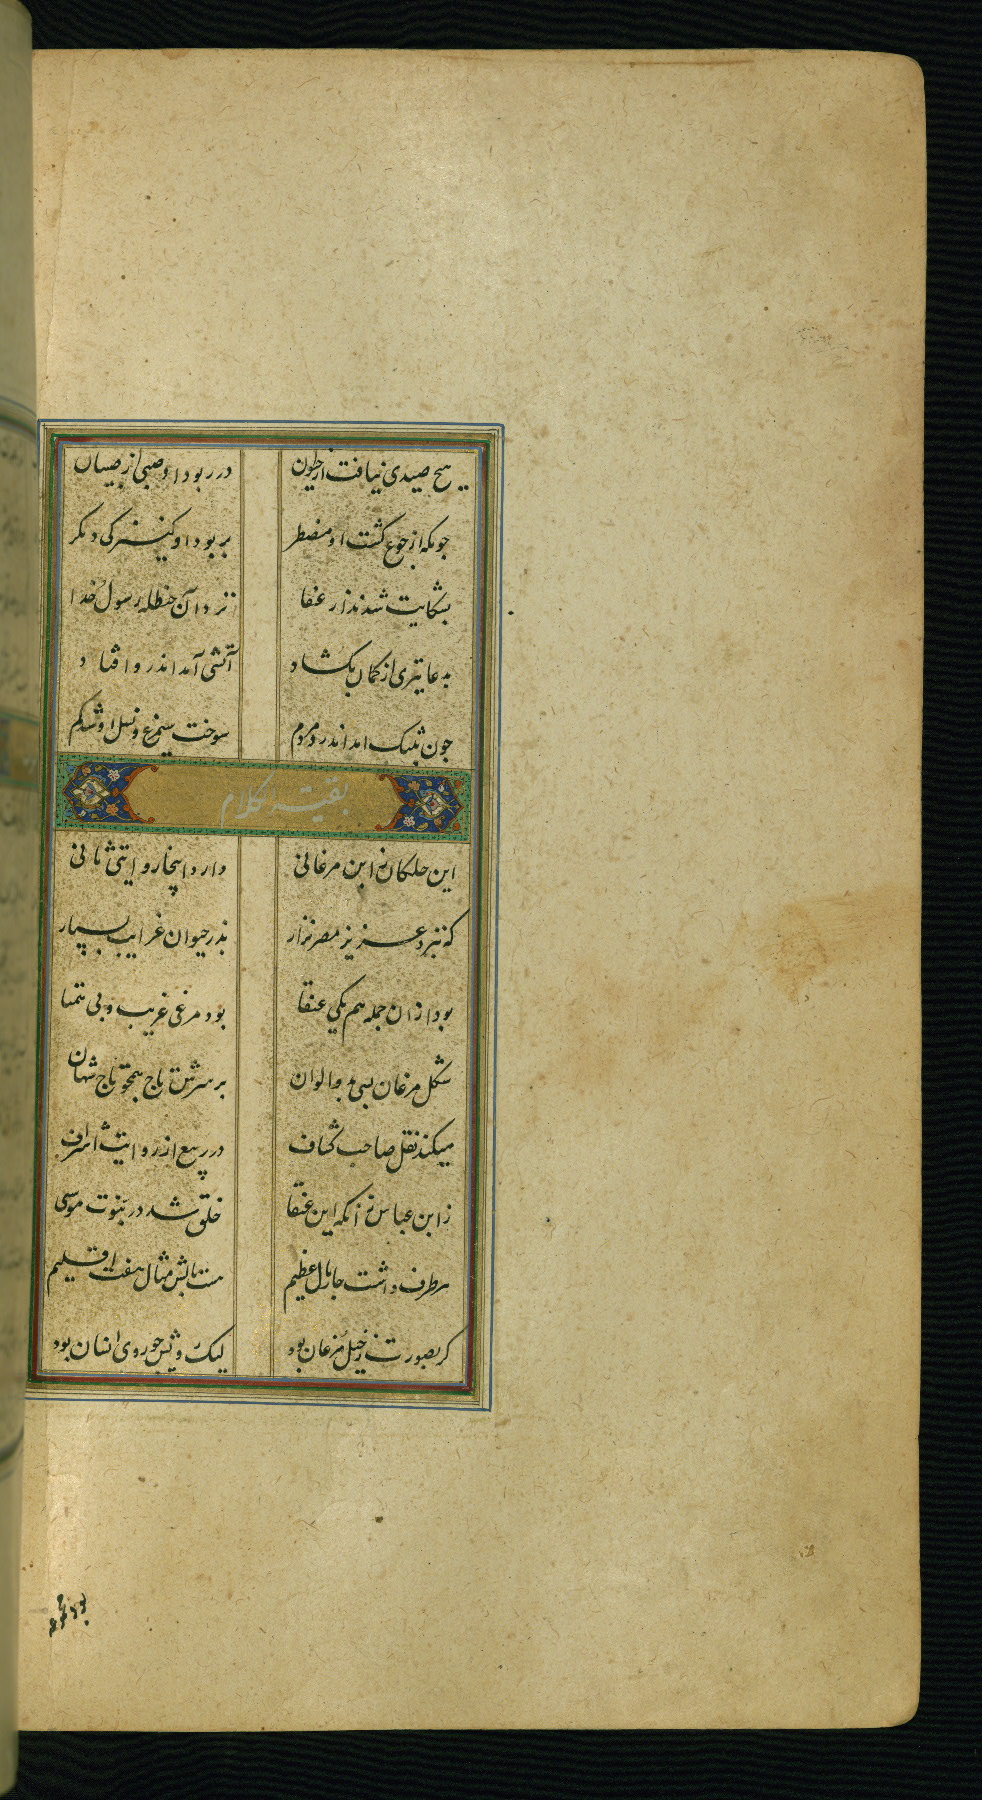 هیچ صیدی نیافت از طیون در ربود او صبی از صبیان
چونکه از جوع گشت او مضطر بربود او کنیزکی دیگر
بشکایت شدند از عنقا نزد آن حنظله رسول خدا
بدعا تیری از کمان بگشاد آتشی آمد اندرو افتاد
سوخت سیمرغ و نسل او شد کم
بقیة الکلام
این خلکان ابن مرغانی دارد اینجا روایتی ثانی
که بنزد عزیز مصر نزار بد ز حیوان غرایب بسیار
بود ازان جمله هم یکی عنقا بود مرغی غریب و بی همتا
شکل مرغان بسی بدو الوان بر سرش تاج همچو تاج شهان
میکند نقل صاحب کشاف در ربیع از روایت اشراف
ز ابن عباس آنکه این عنقا خلق شد در نبوت موسی
هر طرف داشت چار بال عظیم هست بالش مثال هفت اقلیم
گر بصورت ز خیل مرغان بود لیک رویش چو روی انسان بود